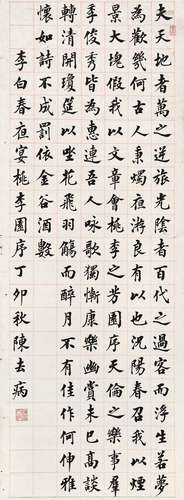 夫天地者萬之逆旅光陰者百代之過客而浮生若夢
為歡幾何古人秉燭夜游良有以也況陽春召我以煙
景大塊假我以文章會桃李之芳園序天倫之樂事群
季俊秀皆為惠連吾人詠歌獨慚康樂幽賞未已高談
轉清開瓊筵以坐花飛羽觴而醉月不有佳作何伸雅
懷如詩不成罰依金谷酒數
李白春夜宴桃李園序丁卯秋陳去病